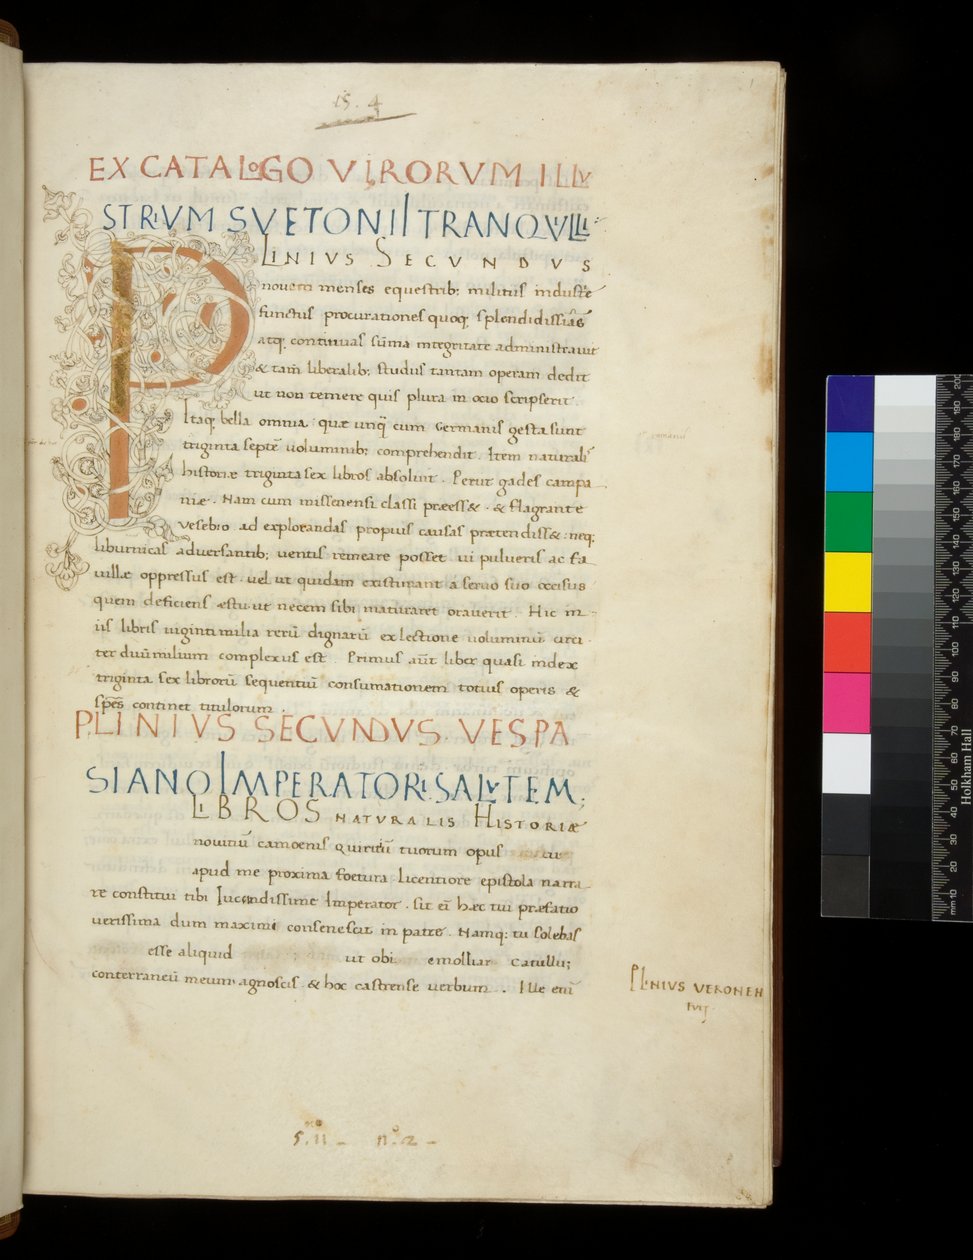 15. 4
EX CATALOGO VIRORVM ILLV
STRIVM SVETONII TRANQVILLI
PLINIVS SECVNDVS
nouem menses equestrib; militiis industrie
functus procurationes quoq; splendidissimas
atq; continuas sūma integritate administrauit
& tam̄ liberalib; studiis tantam operam dedit
ut non temere quis plura in ocio scripserit.
Itaq; bella omnia quæ unq̄ cum Germanis gesta sunt
triginta septē uoluminib; comprehendit. Item naturalis
historiæ triginta sex libros absoluit. Periit gades campa
niæ. Nam cum missenensi classi præess& & flagrante
vesebio ad explorandas propius causas prætendiss& neq;
liburnicas aduersantib; uentis remeare posset ui pulueris ac fa
uillæ oppressus est uel ut quidam existimant á seruo suo occisus
quem deficiens æstu ut necem sibi maturaret orauerit. Hic in
iis libris uiginti milia rerū dignarū ex lectione uoluminū circi
ter duūmilium complexus est. Primus aūt liber quasi index
triginta sex librorū sequentiū consumationem totius operis &
spēs continet titulorum.
PLINIVS SECVNDVS VESPA
SIANO IMPERATORI SALVTEM;
LIBROS NATVRALIS HISTORIÆ
nouitiū camoenis quiritiū tuorum opus
apud me proxima foetura licentiore epistola narra
re constitui tibi Iucundissime Imperator. sit eī hæc tui præfatio
uerissima dum maximi consenescit in patre. Namq; tu solebas
esse aliquid ut obi emolliar Catullu;
conterraneū meum agnoscis & hoc castrense uerbum. Ille enī
PLINIVS VERONEN
fuit
5.11 - n.º 2 -
mm 10 20 30 40 50 60 70 80 90 100 110 120 130 140 150 160 170 180 190 200
Holkham Hall